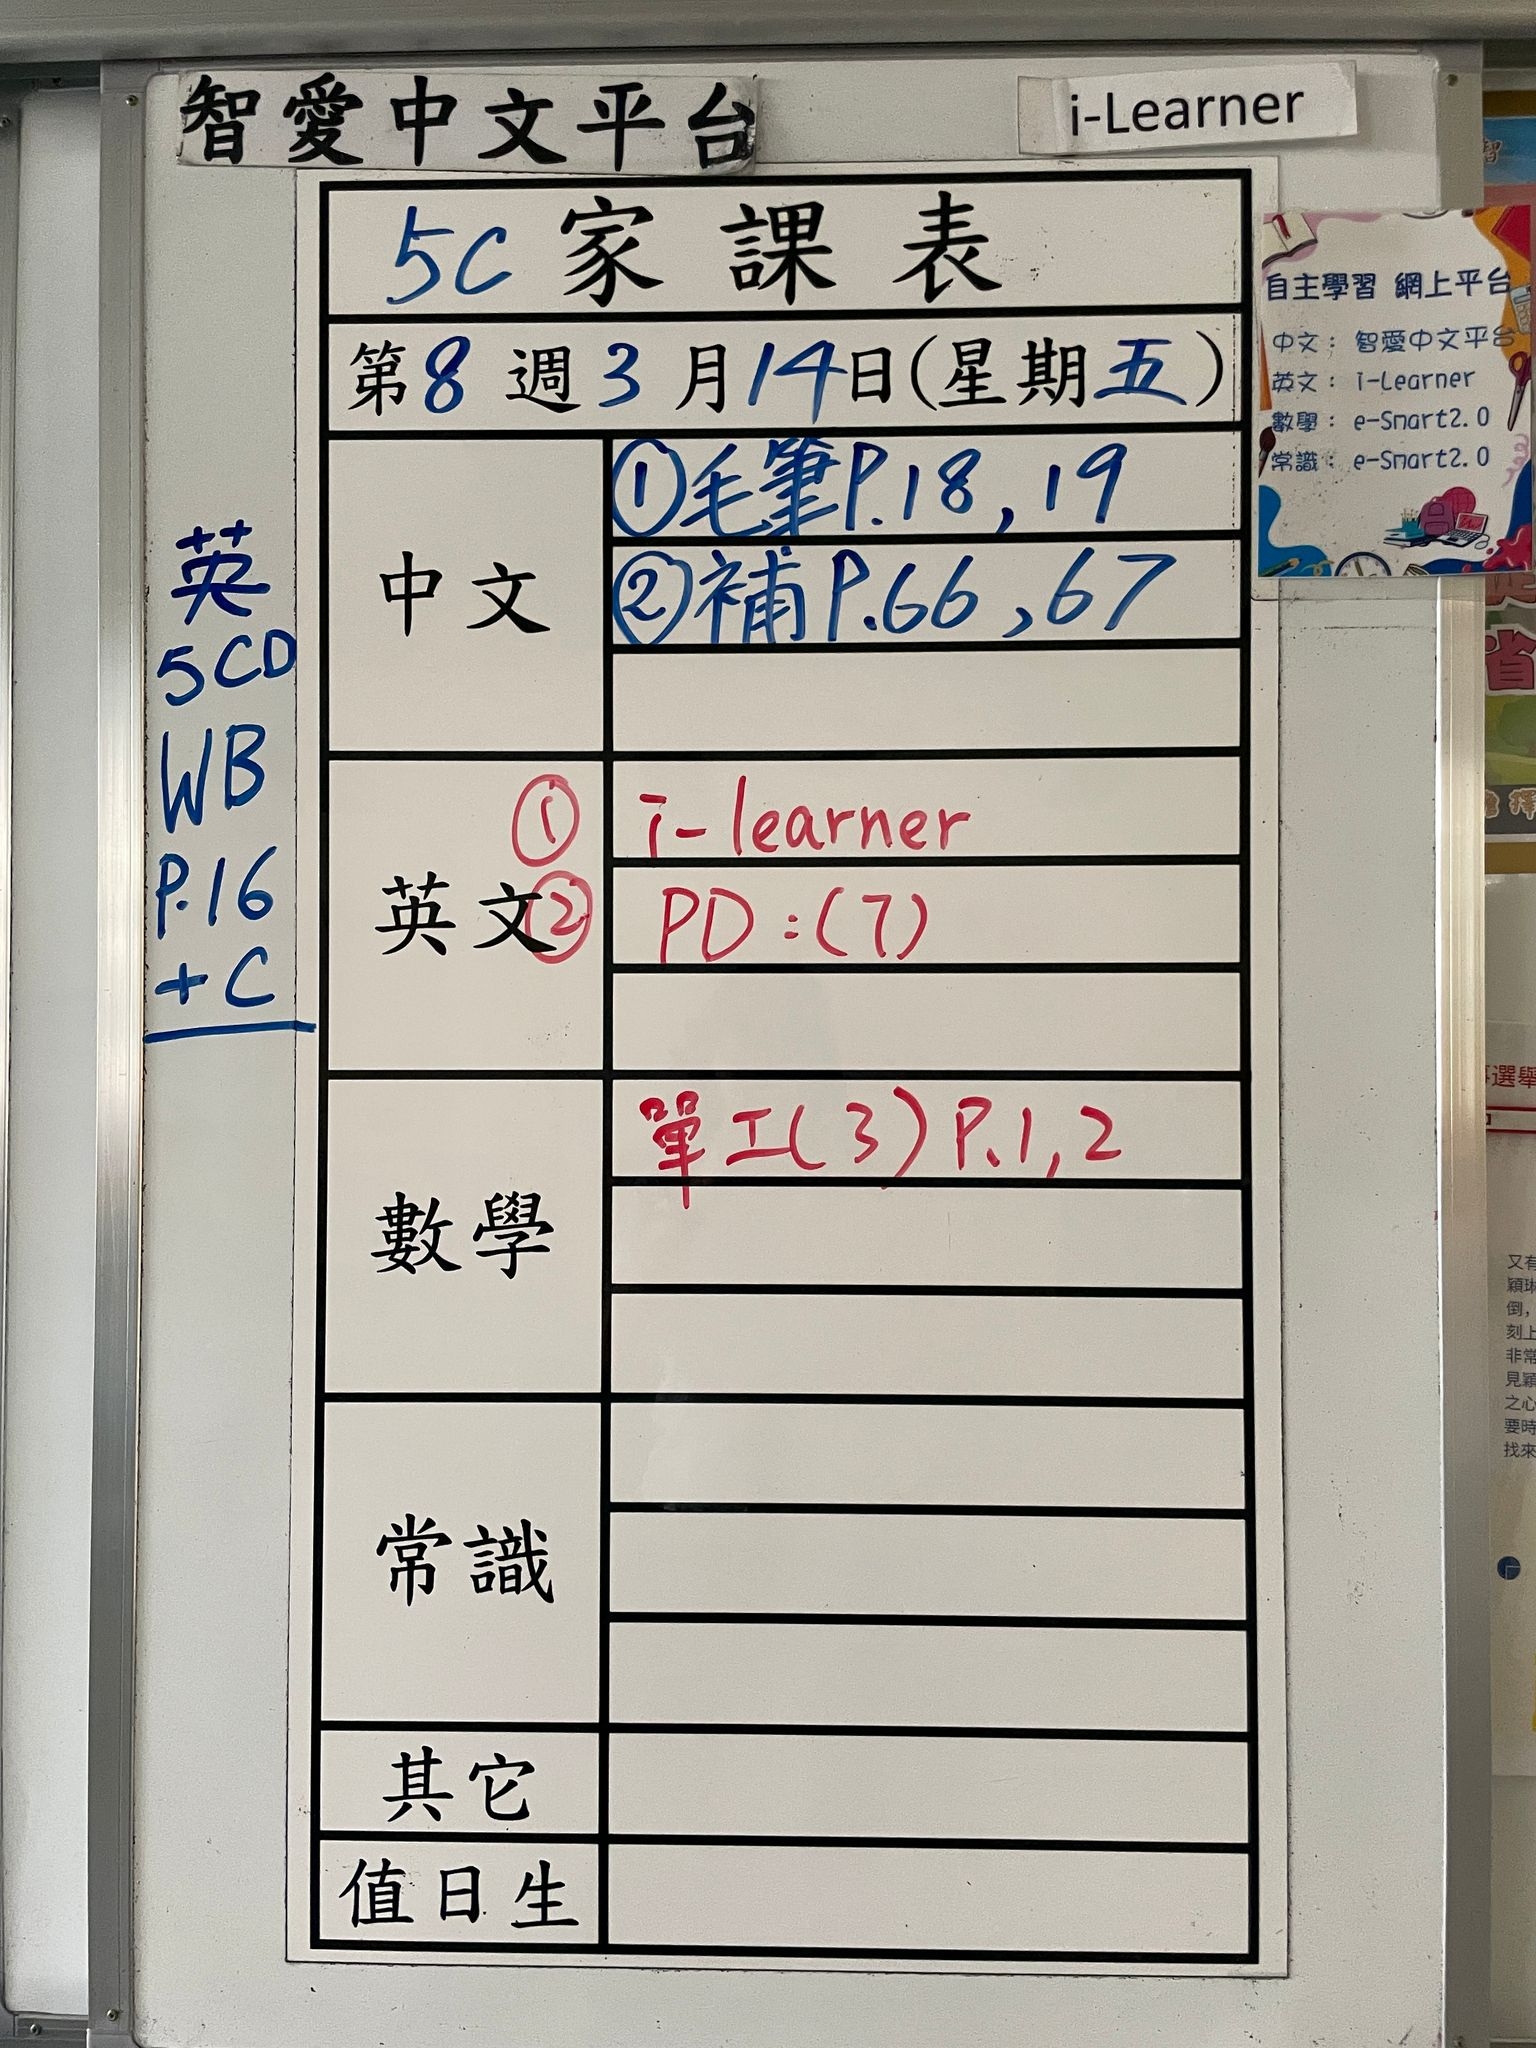 智愛中文平台
i-Learner
5C家課表
第8週3月14日(星期五)
中文
①毛筆P.18,19
②補P.66,67
英文
① i-learner
② PD:(7)
數學
單工(3)P.1,2
常識
其它
值日生
英
5CD
WB
P.16
+C
自主學習 網上平台
中文：智愛中文平台
英文：i-Learner
數學：e-Smart2.0
常識：e-Smart2.0
智
省
擇
再選舉
又有
穎琳
倒，
刻上
非常
見穎
之心
要時
找來